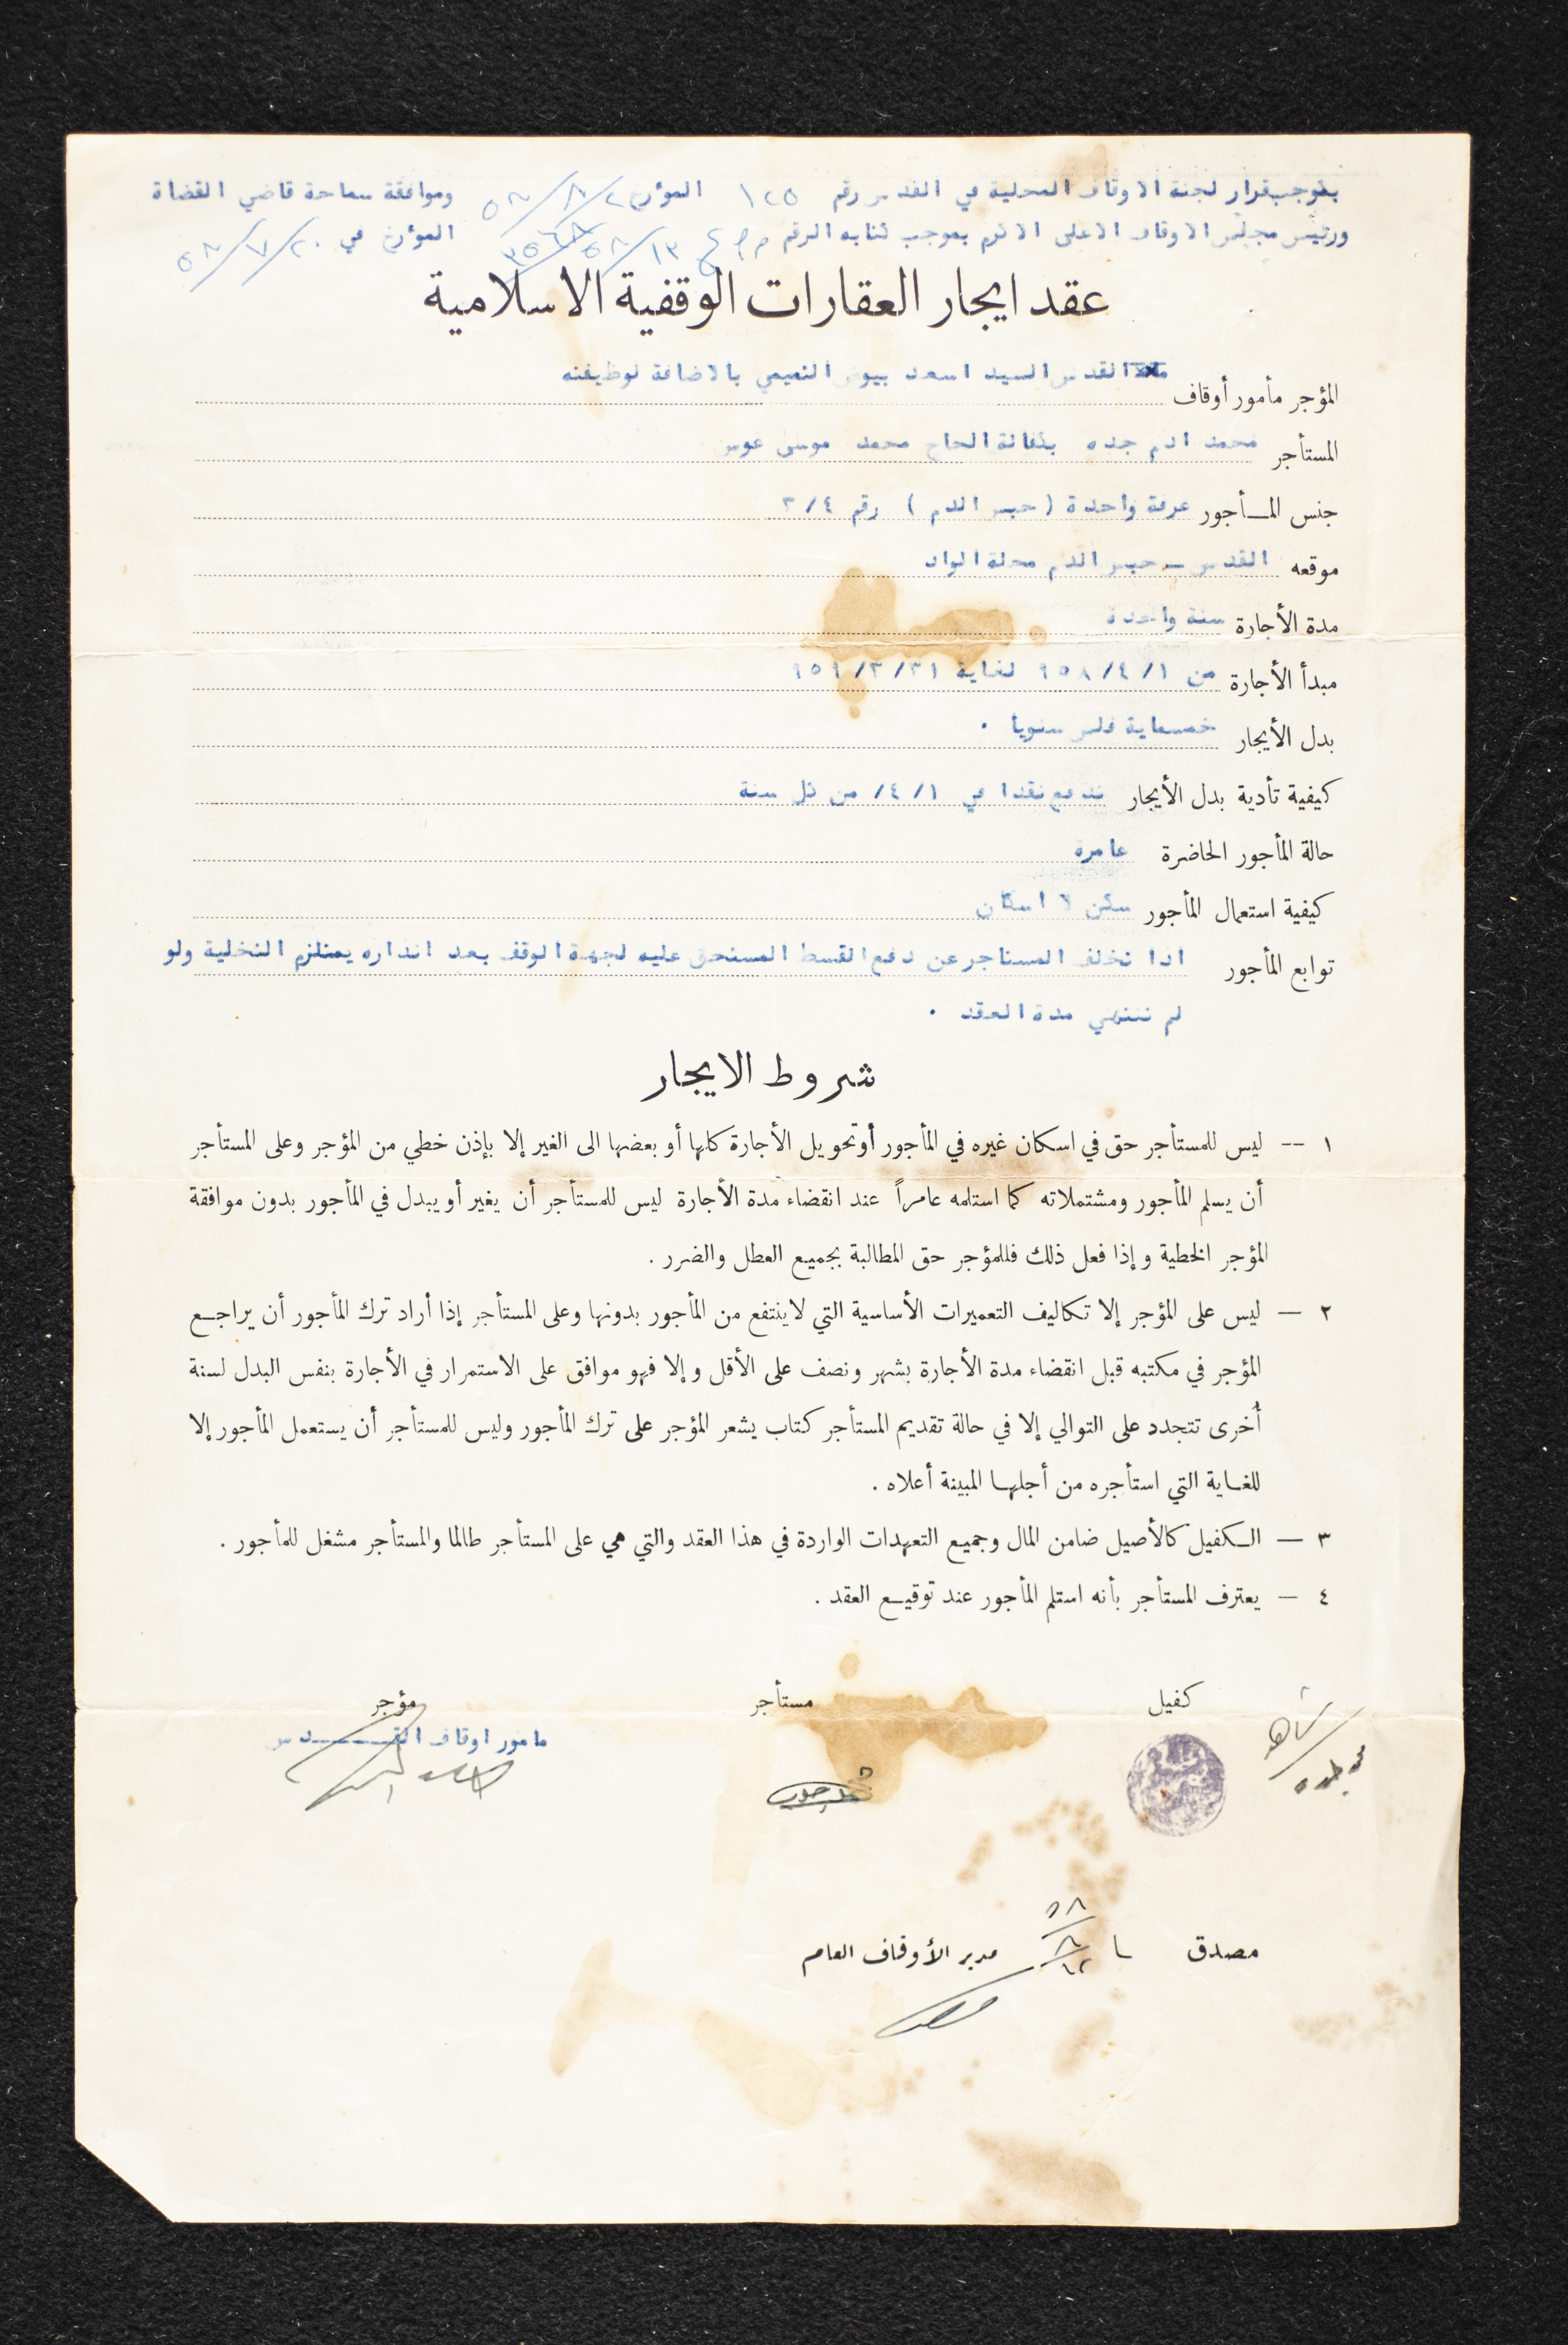 بموجب قرار لجنة الاوقاف المحلية في القدس رقم ١٢٥ المؤرخ ٥٨/٨/٢ وموافقة سماحة قاضي القضاة
ورئيس مجلس الاوقاف الاعلى الاكرم بموجب كتابه الرقم المؤرخ في ٥٨/٧/٢٠
عقد ايجار العقارات الوقفية الاسلامية
المؤجر مأمور أوقاف القدس السيد اسعد بيوض التميمي بالاضافة لوظيفته
المستأجر محمد ادم جده بكفالة الحاج محمد موسى
جنس المـأجور غرفة واحدة ( حبس الدم ) رقم ٣/٤
موقعه القدس ــ حبس الدم محلة الواد
مدة الأجارة سنة واحدة
مبدأ الأجارة من ٩٥٨/٤/١ لغاية ٩٥٩/٣/٣١
بدل الأيجار خمسماية فلس سنويا ٠
كيفية تأدية بدل الأيجار تدفع نقدا في ٤/١/ من كل سنة
حالة المأجور الحاضرة عامرة
كيفية استعمال المأجور سكن لا اسكان
توابع المأجور اذا تخلف المستاجر عن دفع القسط المستحق عليه لجهة الوقف بعد انذاره يستلزم التخلية ولو
لم تنتهي مدة العقد ٠
شروط الايجار
١ -- ليس للمستأجر حق في اسكان غيره في المأجور أو تحويل الأجارة كلها أو بعضها الى الغير إلا بإذن خطي من المؤجر وعلى المستأجر
أن يسلم المأجور ومشتملاته كما استلمه عامراً عند انقضاء مدة الأجارة ليس للمستأجر أن يغير أو يبدل في المأجور بدون موافقة
المؤجر الخطية وإذا فعل ذلك فللمؤجر حق المطالبة بجميع العطل والضرر .
٢ — ليس على المؤجر إلا تكاليف التعميرات الأساسية التي لا ينتفع من المأجور بدونها وعلى المستأجر إذا أراد ترك المأجور أن يراجع
المؤجر في مكتبه قبل انقضاء مدة الأجارة بشهر ونصف على الأقل وإلا فهو موافق على الاستمرار في الأجارة بنفس البدل لسنة
أخرى تتجدد على التوالي إلا في حالة تقديم المستأجر كتاب يشعر المؤجر على ترك المأجور وليس للمستأجر أن يستعمل المأجور إلا
للغاية التي استأجره من أجلها المبينة أعلاه .
٣ — الكفيل كالأصيل ضامن المال وجميع التعهدات الواردة في هذا العقد والتي هي على المستأجر طالما والمستأجر مشغل للمأجور .
٤ — يعترف المستأجر بأنه استلم المأجور عند توقيع العقد .
شاهد كفيل مستأجر مؤجر
مامور اوقاف القـــدس
مصدق ٥٨/٨/١٢ مدير الأوقاف العام